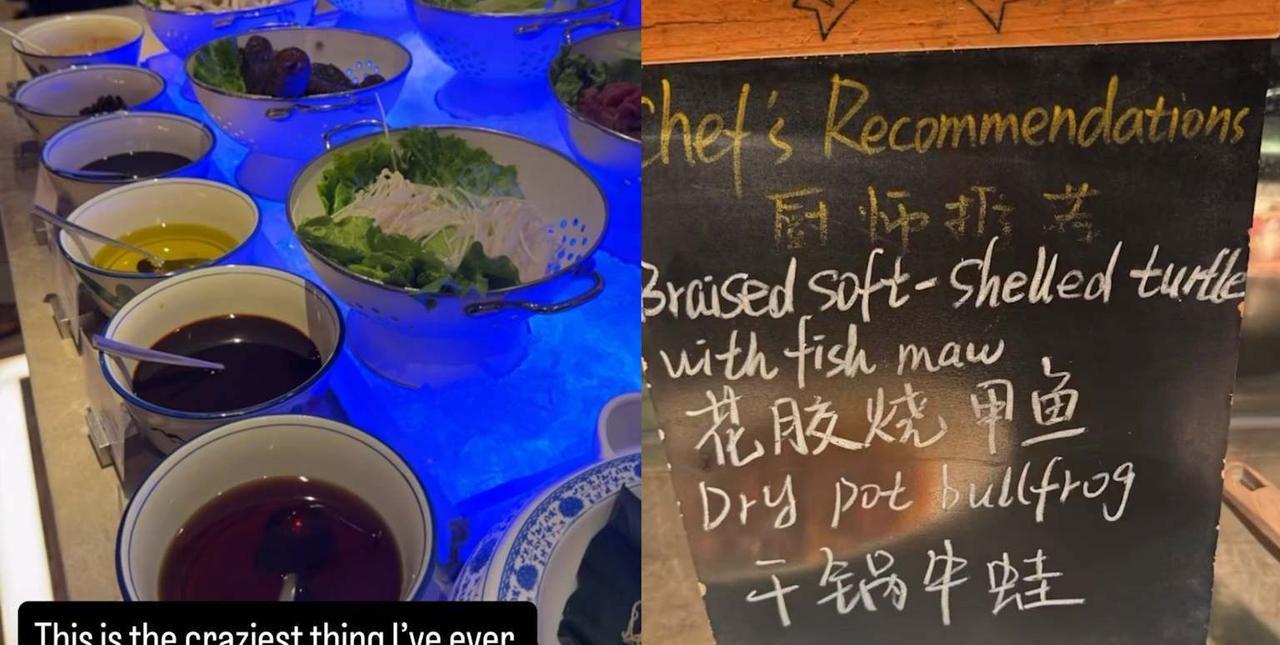 This is the craziest thing I've ever
Chef's Recommendations
厨师推荐
Braised soft-shelled turtle
with fish maw
花胶烧甲鱼
Dry pot bullfrog
干锅牛蛙